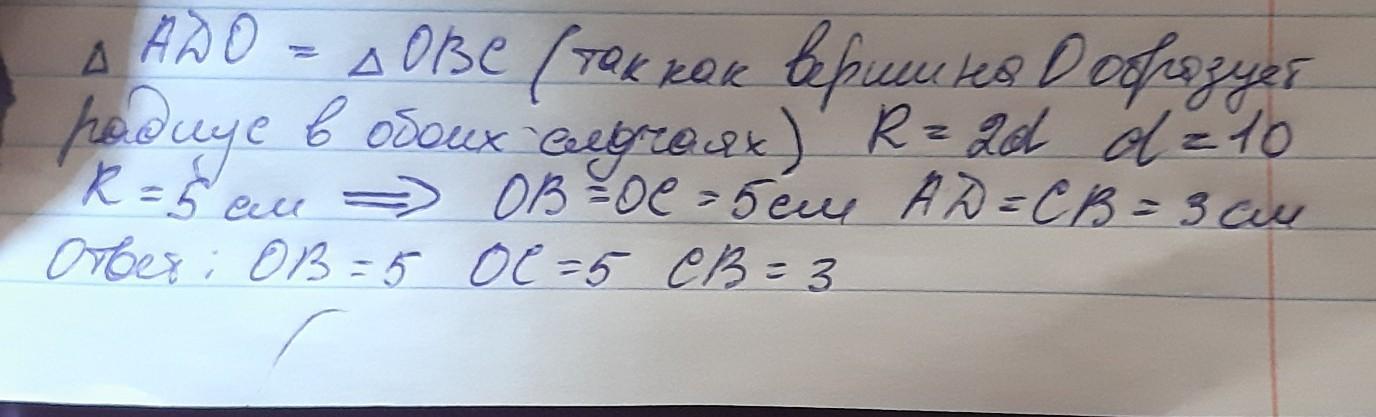 △ ADO = △ OBC (так как вершина O образует
радиус в обоих случаях) R = 2d d = 10
R = 5 см ⟹ OB = OC = 5см AD = CB = 3 см
Ответ: OB = 5 OC = 5 CB = 3